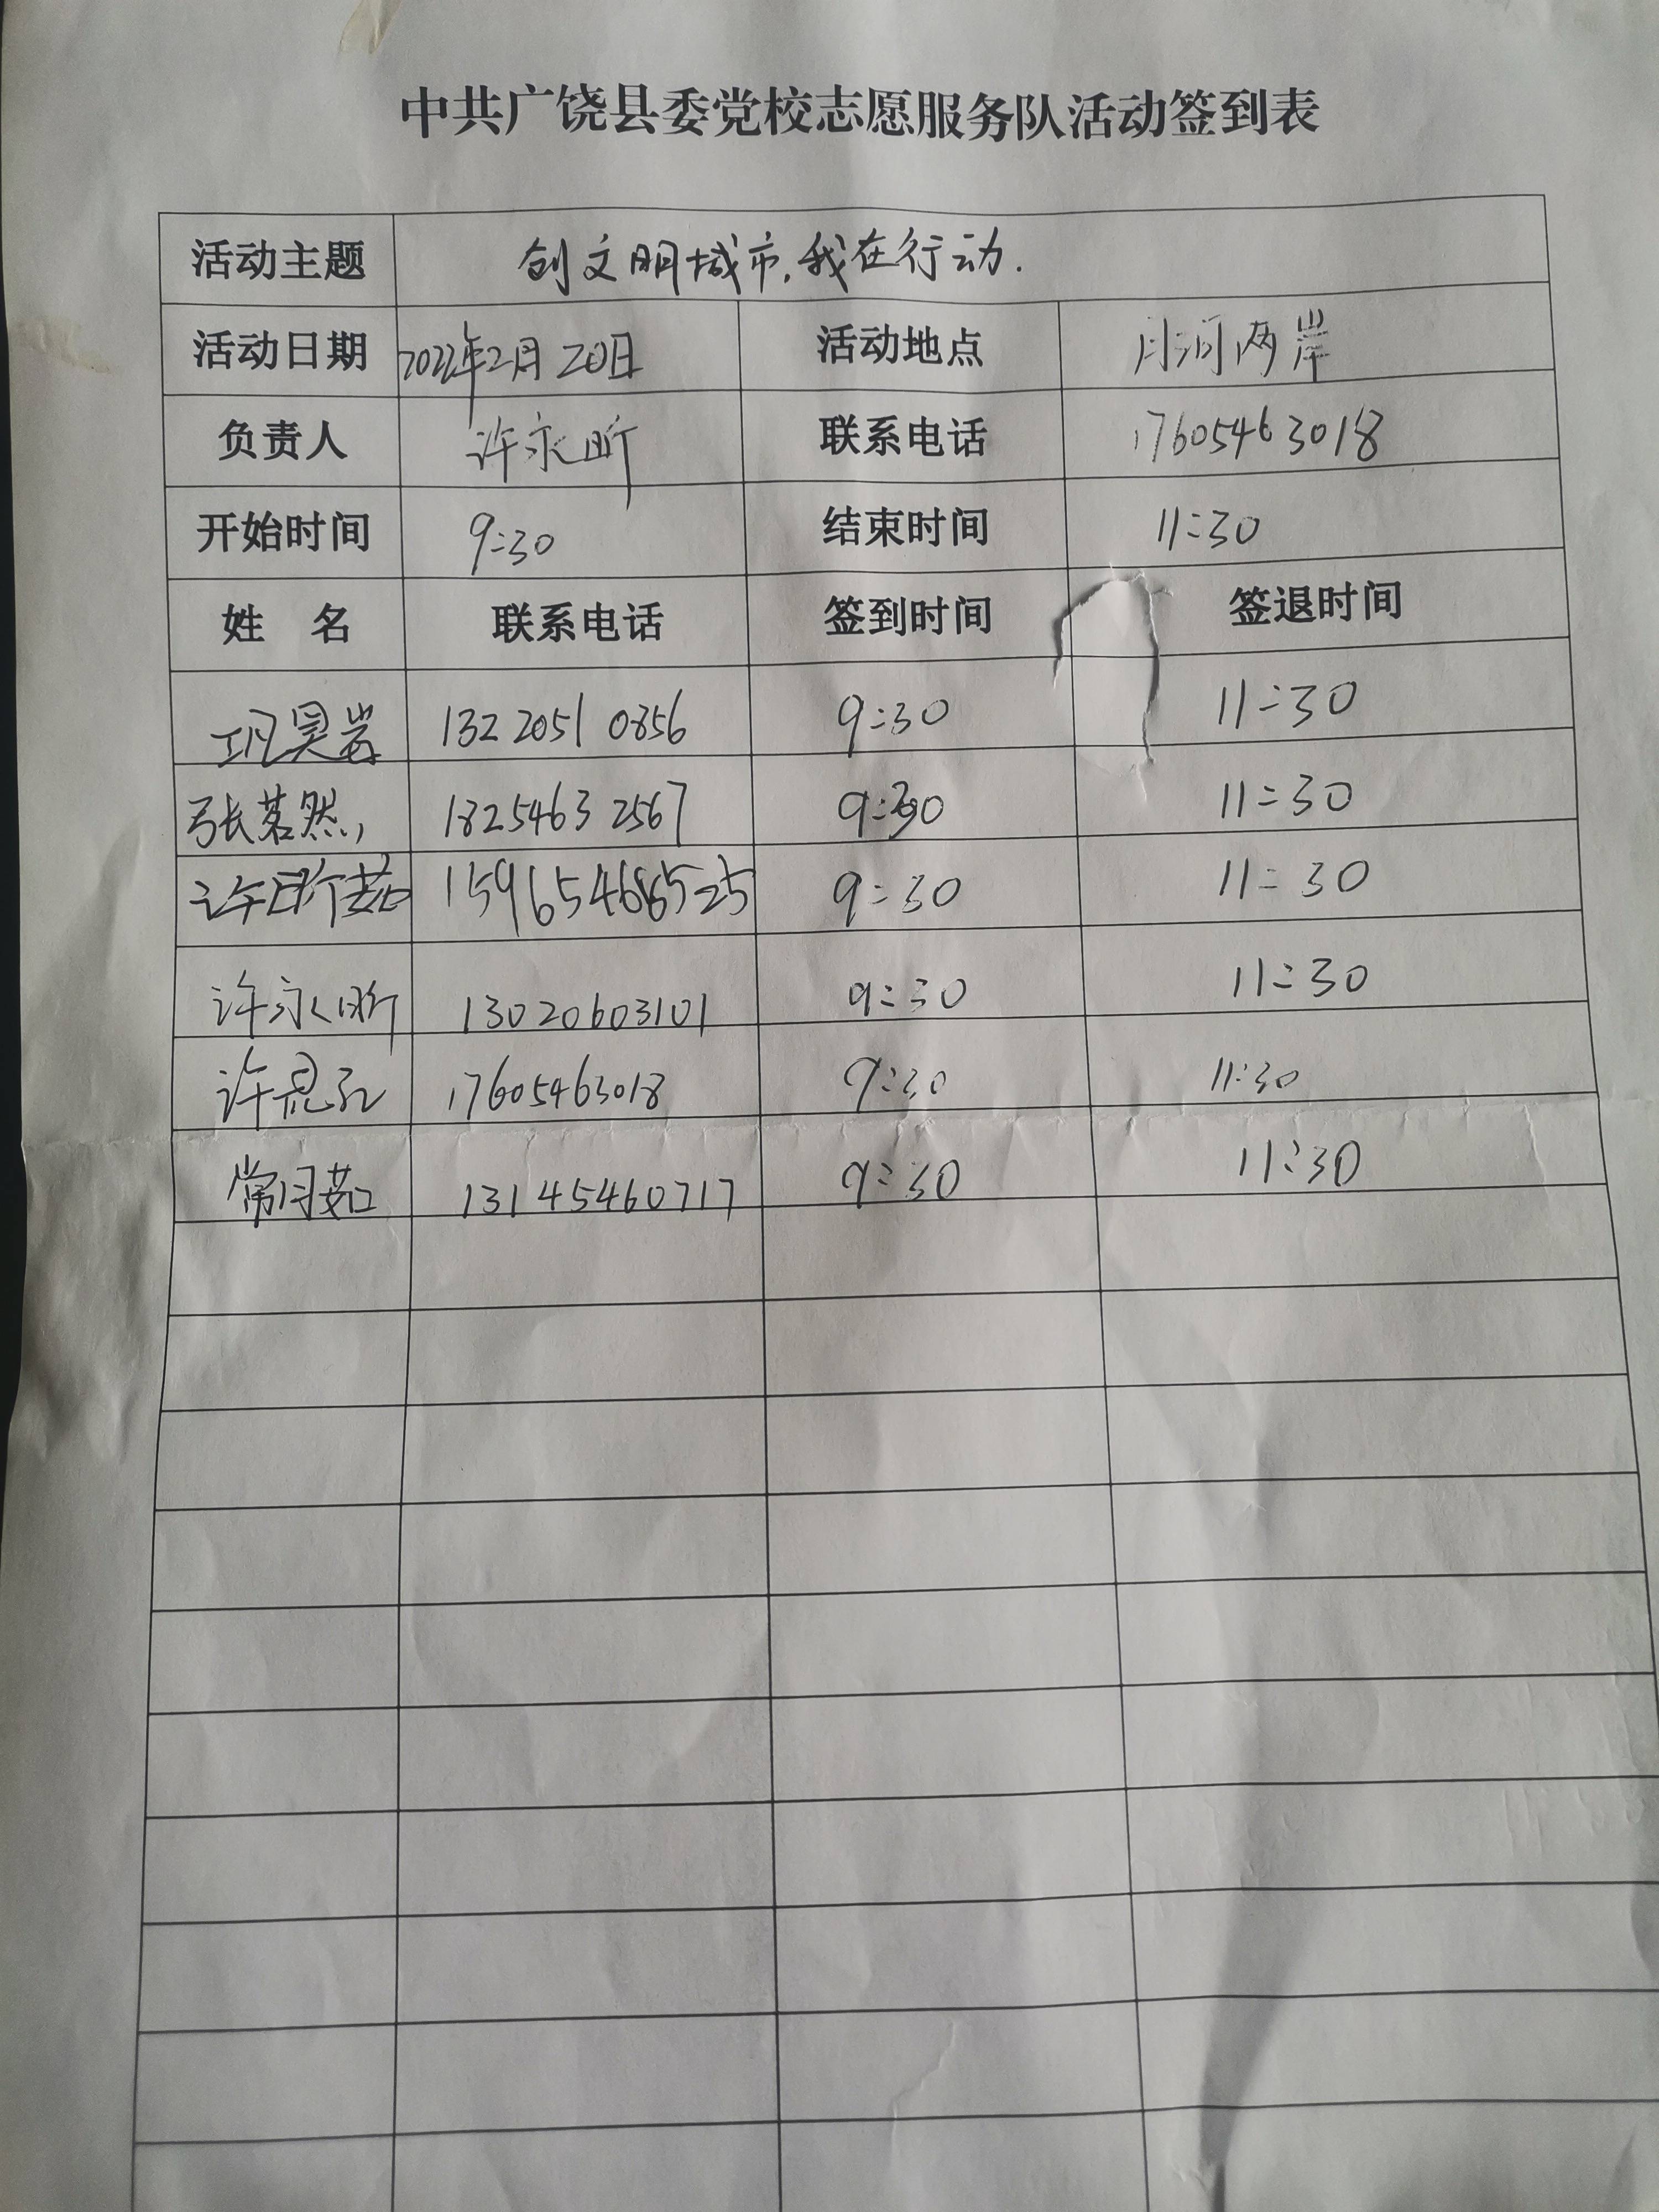 中共广饶县委党校志愿服务队活动签到表
活动主题 创文明城市,我在行动.
活动日期 2022年2月20日 活动地点 月河两岸
负责人 许永昕 联系电话 17605463018
开始时间 9:30 结束时间 11:30
姓 名 联系电话 签到时间 签退时间
巩昊 132 2051 0856 9:30 11:30
张茗然 1825463 2567 9:30 11:30
许昕茹 9:30 11:30
许永昕 13020603101 9:30 11:30
许恩 17605463018 9:30 11:30
常月茹 13145460717 9:30 11:30